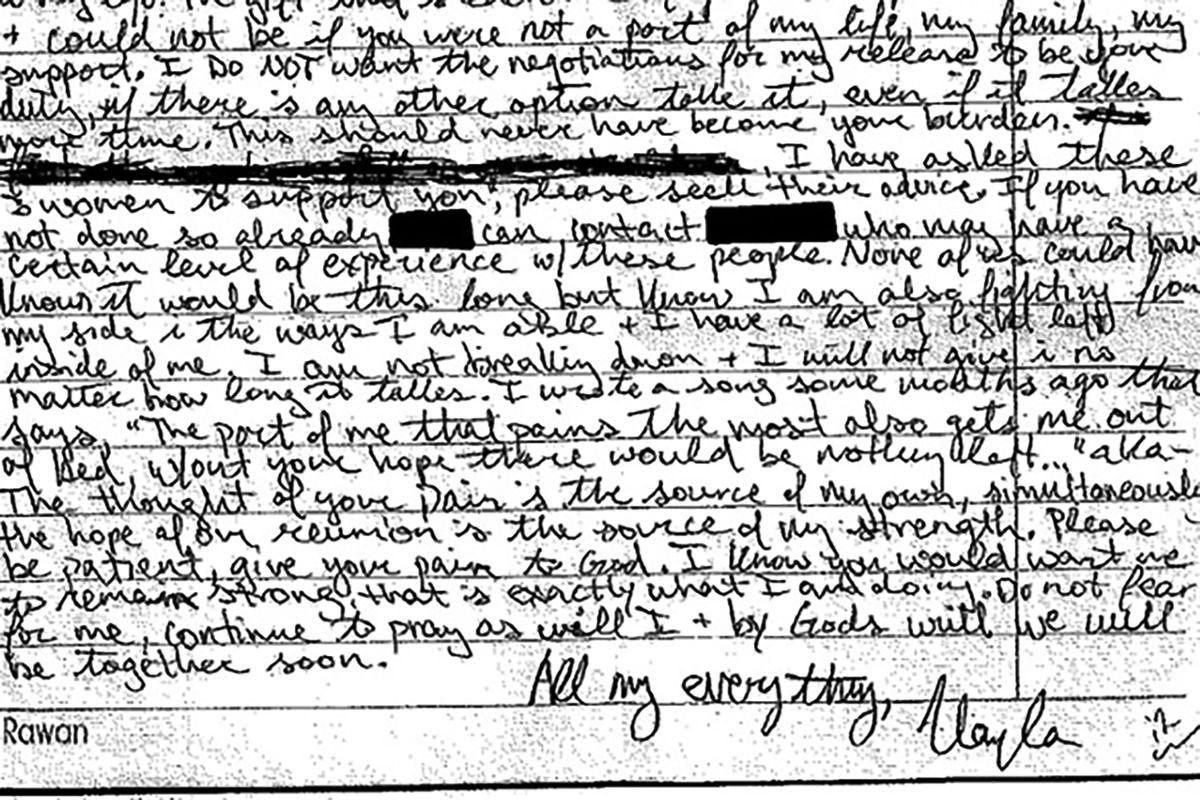 + could not be if you were not a part of my life, my family, my
support. I DO NOT want the negotiations for my release to be your
duty, if there is any other option take it, even if it takes
more time. This should never have become your burden.
I have asked these
women to support you; please seek their advice. If you have
not done so already can contact who may have a
certain level of experience w/ these people. None of us could have
known it would be this long but know I am also fighting from
my side in the ways I am able + I have a lot of fight left
inside of me. I am not breaking down + I will not give in no
matter how long it takes. I wrote a song some months ago that
says, "The part of me that pains the most also gets me out
of bed, w/out your hope there would be nothing left..." aka-
The thought of your pain is the source of my own, simultaneously
the hope of our reunion is the source of my strength. Please
be patient, give your pain to God. I know you would want me
to remain strong. that is exactly what I am doing. Do not fear
for me, continue to pray as will I + by Gods will we will
be together soon.
All my everything,
Kayla
Rawan